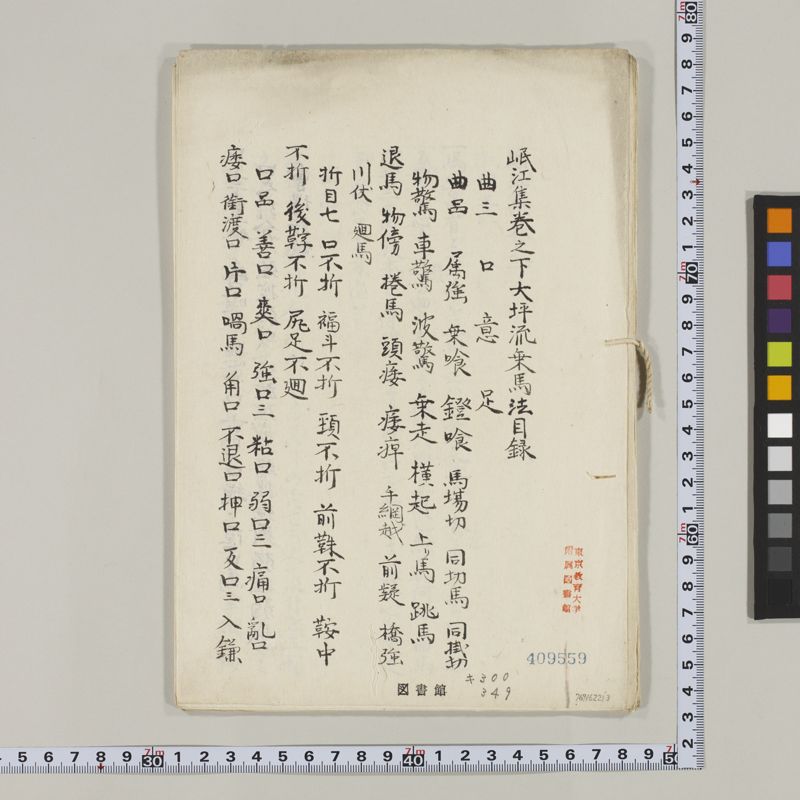 岷江集巻之下大坪流乗馬法目録
曲三 口 意 足
曲品 属強 乗喰 鐙喰 馬場切 同切馬 同掛
物驚 車驚 波驚 乗走 横起 上リ馬 跳馬
退馬 物傍 捲馬 頭痿 痿痺 手綱越 前疑 橋強
川伏 廻馬
折目七 口不折 福斗不折 頸不折 前不折 鞍中
不折 後不折 尻足不廻
口品 善口 爽口 強口三 粘口 弱口三 痛口 乱口
痿口 銜渡口 片口 喎馬 角口 不退口 押口 反口三 入鎌
東京教育大学
附属図書館
409559
図書館
キ300
349